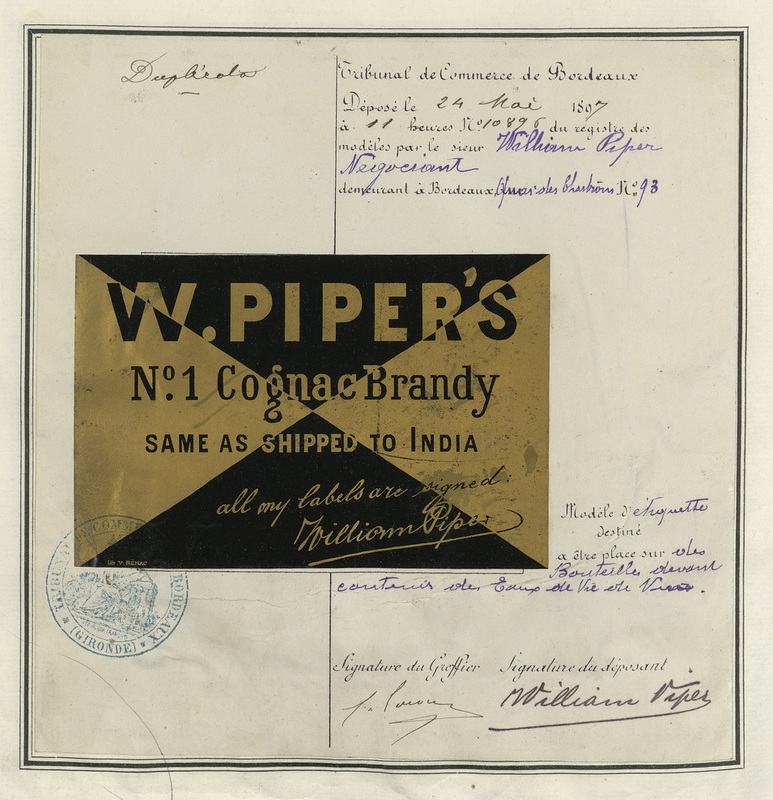 Duplicata
Tribunal de Commerce de Bordeaux
Déposé le 24 Mai 1897
à 11 heures No 10896 du registre des
modèles par le sieur William Piper
Négociant
demeurant à Bordeaux, Quai des Chartrons No 93
W. PIPER'S
No. 1 Cognac Brandy
SAME AS SHIPPED TO INDIA
all my labels are signed:
William Piper
Lith. V. RENAC
Modèle d'étiquette
destiné
a être place sur des
Bouteilles devant
contenir des Eaux de Vie de Vin.
TRIBUNAL DE COMMERCE BORDEAUX
(GIRONDE)
Signature du Greffier Signature du déposant
William Piper